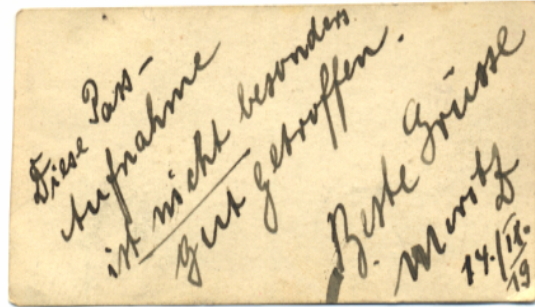 Diese Pass-
Aufnahme
ist nicht besonders
gut getroffen.
Beste Grüsse
Moritz
14./IX.
19